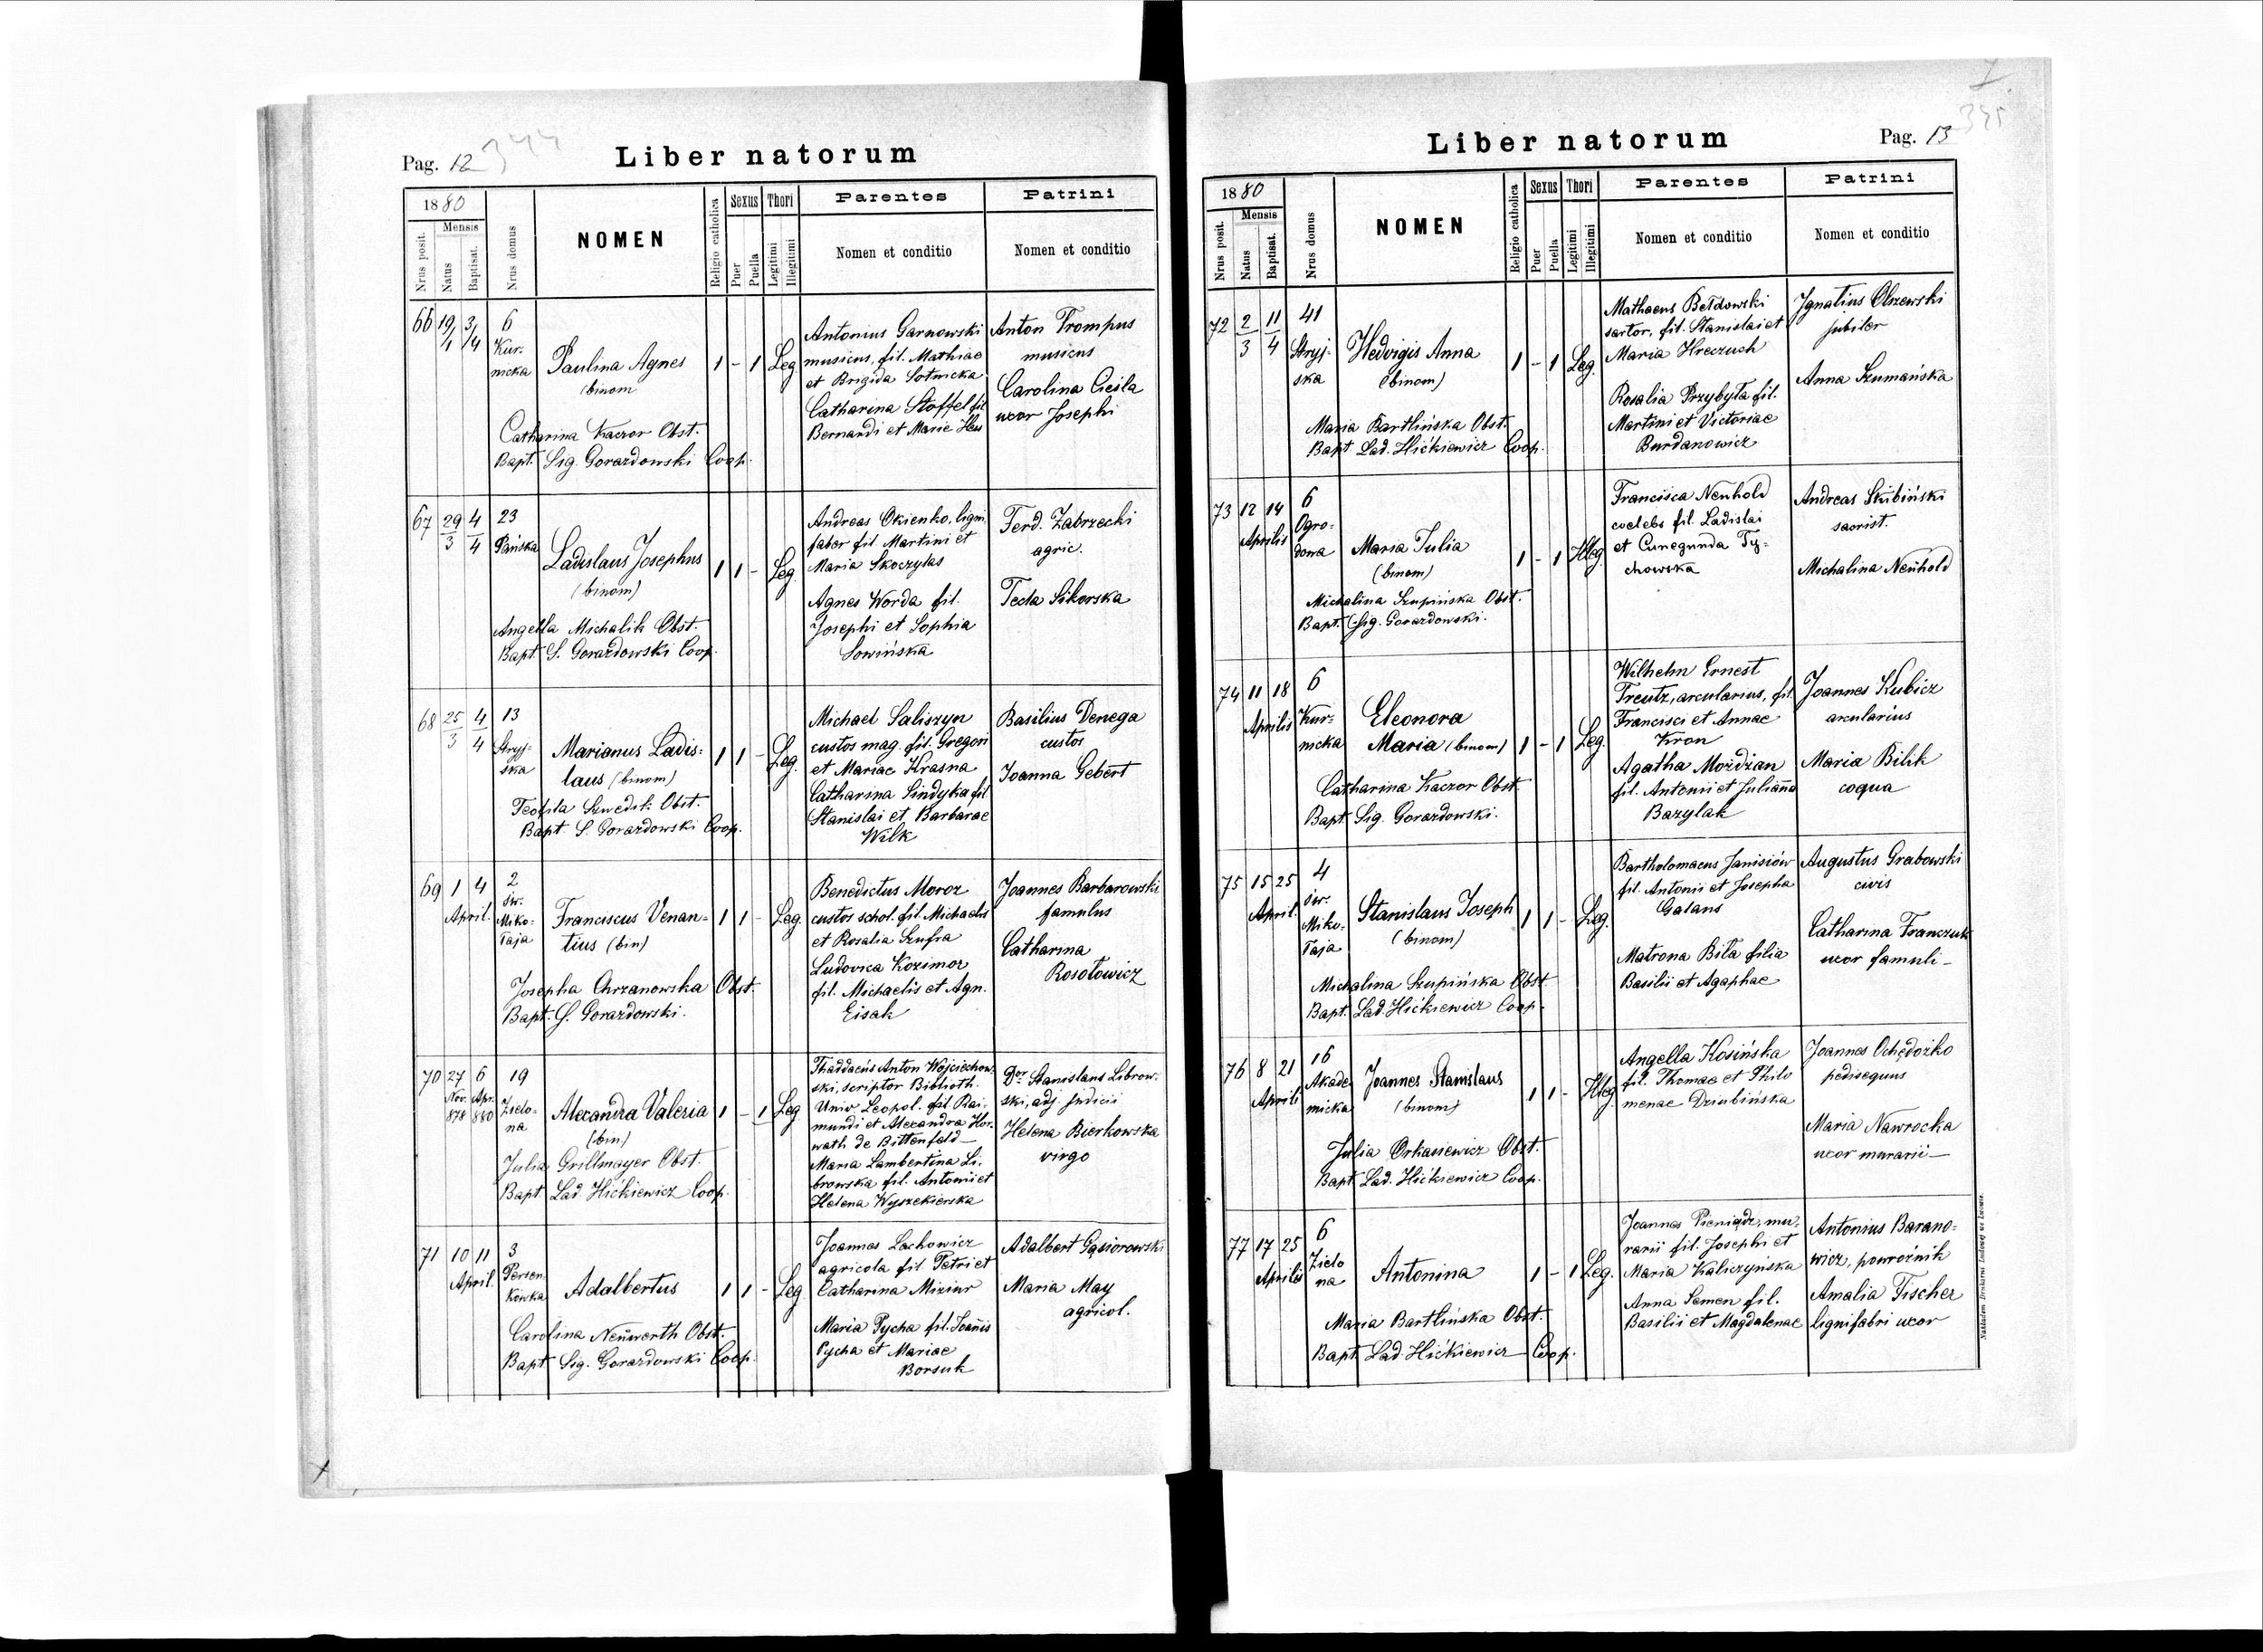 Pag. 12 344
Liber natorum
1880
Mensis
Nrus posit.
Natus
Baptisat.
Nrus domus
NOMEN
Religio catholica
Sexus
Puer
Puella
Thori
Legitimi
Illegitimi
Parentes
Nomen et conditio
Patrini
Nomen et conditio
66 19/1 3/4 6
Kur-
nicka
Paulina Agnes
(binom
1 - 1 Leg.
Catharina Kaczor Obst.
Bapt. Sig. Gorazdowski Coop.
Antonius Garnowski
musicus, fil. Mathiae
et Brigida Sotnicka
Catharina Stoffel fil
Bernardi et Marie
Anton Trompus
musicus
Carolina Cieśla
uxor Josephi
67 29/3 4/4 23
Pańska
Ladislaus Josephus
(binom)
1 1 - Leg.
Angella Michalik Obst.
Bapt. S. Gorazdowski Coop.
Andreas Okienko, ligni
faber fil Martini et
Maria Skoczylas
Agnes Worda fil.
Josephi et Sophia
Sowińska
Ferd. Zabrzecki
agric.
Tecla Sikorska
68 25/3 4/4 13
Stryj-
ska
Marianus Ladis-
laus (binom)
1 1 - Leg.
Teofila Szwedik Obst.
Bapt. S. Gorazdowski Coop.
Michael Saliszyn
custos mag. fil. Gregori
et Mariae Krasna
Catharina Sindyka fil
Stanislai et Barbarae
Wilk
Basilius Denega
custos
Joanna Gebert
69 1 4 2
April.
św.
Miko-
łaja
Franciscus Venan-
tius (bin)
1 1 - Leg.
Josepha Chrzanowska Obst.
Bapt. S. Gorazdowski.
Benedictus Moroz
custos schol. fil. Michaelis
et Rosalia Szufra
Ludovica Kozimor
fil. Michaelis et Agn.
Eisak
Joannes Barbarowski
famulus
Catharina
Rosołowicz
70 27 6 19
Nov. Apr.
878 880
Zielo-
na
Alexandra Valeria
(bin)
1 - 1 Leg
Julia Grillmayer Obst.
Bapt. Lad. Hićkiewicz Coop.
Thaddaeus Anton Wojciechow-
ski, scriptor Biblioth.
Univ. Leopol. fil. Rai-
mundi et Alexandra Hor-
wath de Bittenfeld
Maria Lambertina Li-
browska fil. Antonii et
Helena Wyszekierska
Dor Stanislaus Librow-
ski, adj. judicii
Helena Bierkowska
virgo
71 10 11 3
April.
Persen-
kówka
Adalbertus
1 1 - Leg
Carolina Neuwerth Obst.
Bapt. Sig. Gorazdowski Coop.
Joannes Lachowicz
agricola fil Petri et
Catharina Miziur
Maria Pycha fil. Joañis
Pycha et Mariae
Borsuk
Adalbert Gąsiorowski
Maria May
agricol.
Pag. 13
Liber natorum
1880
Mensis
Nrus posit.
Natus
Baptisat.
Nrus domus
NOMEN
Religio catholica
Sexus
Puer
Puella
Thori
Legitimi
Illegitimi
Parentes
Nomen et conditio
Patrini
Nomen et conditio
72 2/3 11/4 41
Stryj-
ska
Hedvigis Anna
(binom)
1 - 1 Leg.
Maria Bartlińska Obst.
Bapt Lad. Hićkiewicz Coop.
Mathaeus Bełdowski
sartor, fil. Stanislai et
Maria Hreczuch
Rosalia Przybyła fil.
Martini et Victoriae
Burdanowicz
Ignatius Olszewski
jubiler
Anna Szumańska
73 12 14 6
Aprilis
Ogro-
dowa
Maria Julia
(binom)
1 - 1 Illeg.
Michalina Szupińska Obst.
Bapt. Sig. Gorazdowski.
Francisca Neuhold
coelebs fil. Ladislai
et Cunegunda Ty-
chowska
Andreas Skibiński
sacrist.
Michalina Neuhold
74 11 18 6
Aprilis
Kur-
nicka
Eleonora
Maria (binom)
1 - 1 Leg.
Catharina Kaczor Obst.
Bapt. Sig. Gorazdowski.
Wilhelm Ernest
Treutz, arcularius, fil.
Francisci et Annae
Kron
Agatha Moździan
fil. Antonii et Julianna
Bazylak
Joannes Kubicz
arcularius
Maria Bilik
coqua
75 15 25 4
April.
św.
Miko-
łaja
Stanislaus Joseph
(binom)
1 1 - Leg.
Michalina Szupińska Obst.
Bapt. Lad. Hićkiewicz Coop.
Bartholomaeus Janisiów
fil. Antonii et Josepha
Galans
Matrona Biła filia
Basilii et Agaphae
Augustus Grabowski
civis
Catharina Franczuk
uxor famuli
76 8 21 16
Aprili
Akade
micka
Joannes Stanislaus
(binom)
1 1 - Illeg.
Julia Orkasiewicz Obst.
Bapt Lad. Hićkiewicz Coop.
Angella Kosińska
fil. Thomae et Philo
menae Dziubińska
Joannes Ochędożko
pedisequus
Maria Nawrocka
uxor murarii
77 17 25 6
Aprilis
Zielo
na
Antonina
1 - 1 Leg.
Maria Bartlińska Obst.
Bapt. Lad. Hićkiewicz Coop.
Joannes Pieniądz, mu-
rarii fil. Josephi et
Maria Kaliczyńska
Anna Semen fil.
Basilii et Magdalenae
Antonius Barano-
wicz, powroźnik
Amalia Fischer
lignifabri uxor
Nakładem Drukarni Ludowej we Lwowie.